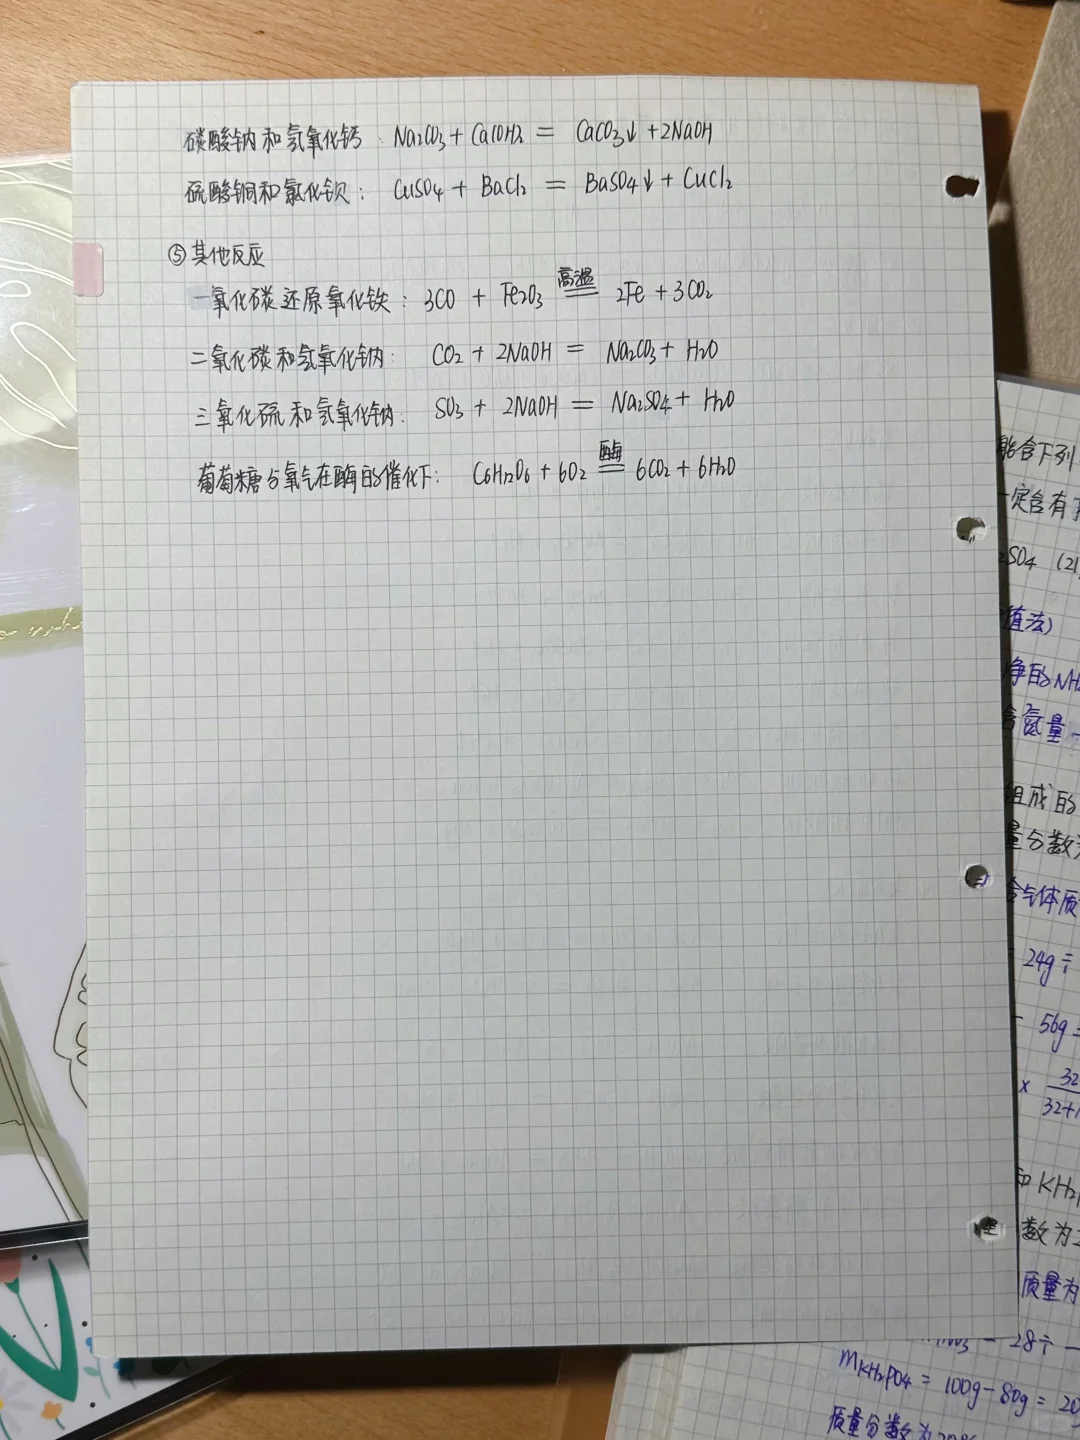 碳酸钠和氢氧化钙: Na2CO3 + Ca(OH)2 = CaCO3↓ + 2NaOH
硫酸铜和氯化钡: CuSO4 + BaCl2 = BaSO4↓ + CuCl2
⑤其他反应
高温
一氧化碳还原氧化铁: 3CO + Fe2O3 = 2Fe + 3CO2
二氧化碳和氢氧化钠: CO2 + 2NaOH = Na2CO3 + H2O
三氧化硫和氢氧化钠: SO3 + 2NaOH = Na2SO4 + H2O
酶
葡萄糖与氧气在酶的催化下: C6H12O6 + 6O2 = 6CO2 + 6H2O
能含下列
一定含有
SO4 (21
值法)
净的NH4
含氮量
组成的
量分数
气体质
24g÷
56g=
× 32
32+1
和KH2
数为
质量为
28÷
mKH2PO4 = 100g-80g = 20
质量分数为20%